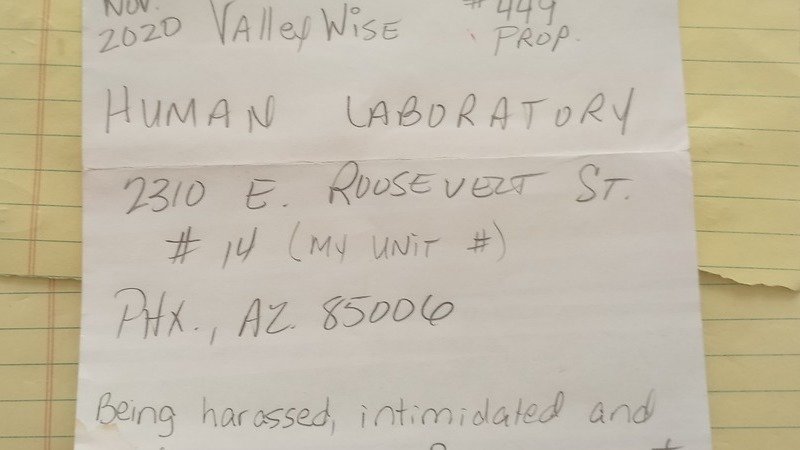 Nov. # 449
2020 Valley Wise PROP.
HUMAN LABORATORY
2310 E. ROOSEVELT ST.
# 14 (MY UNIT #)
PHX., AZ. 85006
Being harassed, intimidated and